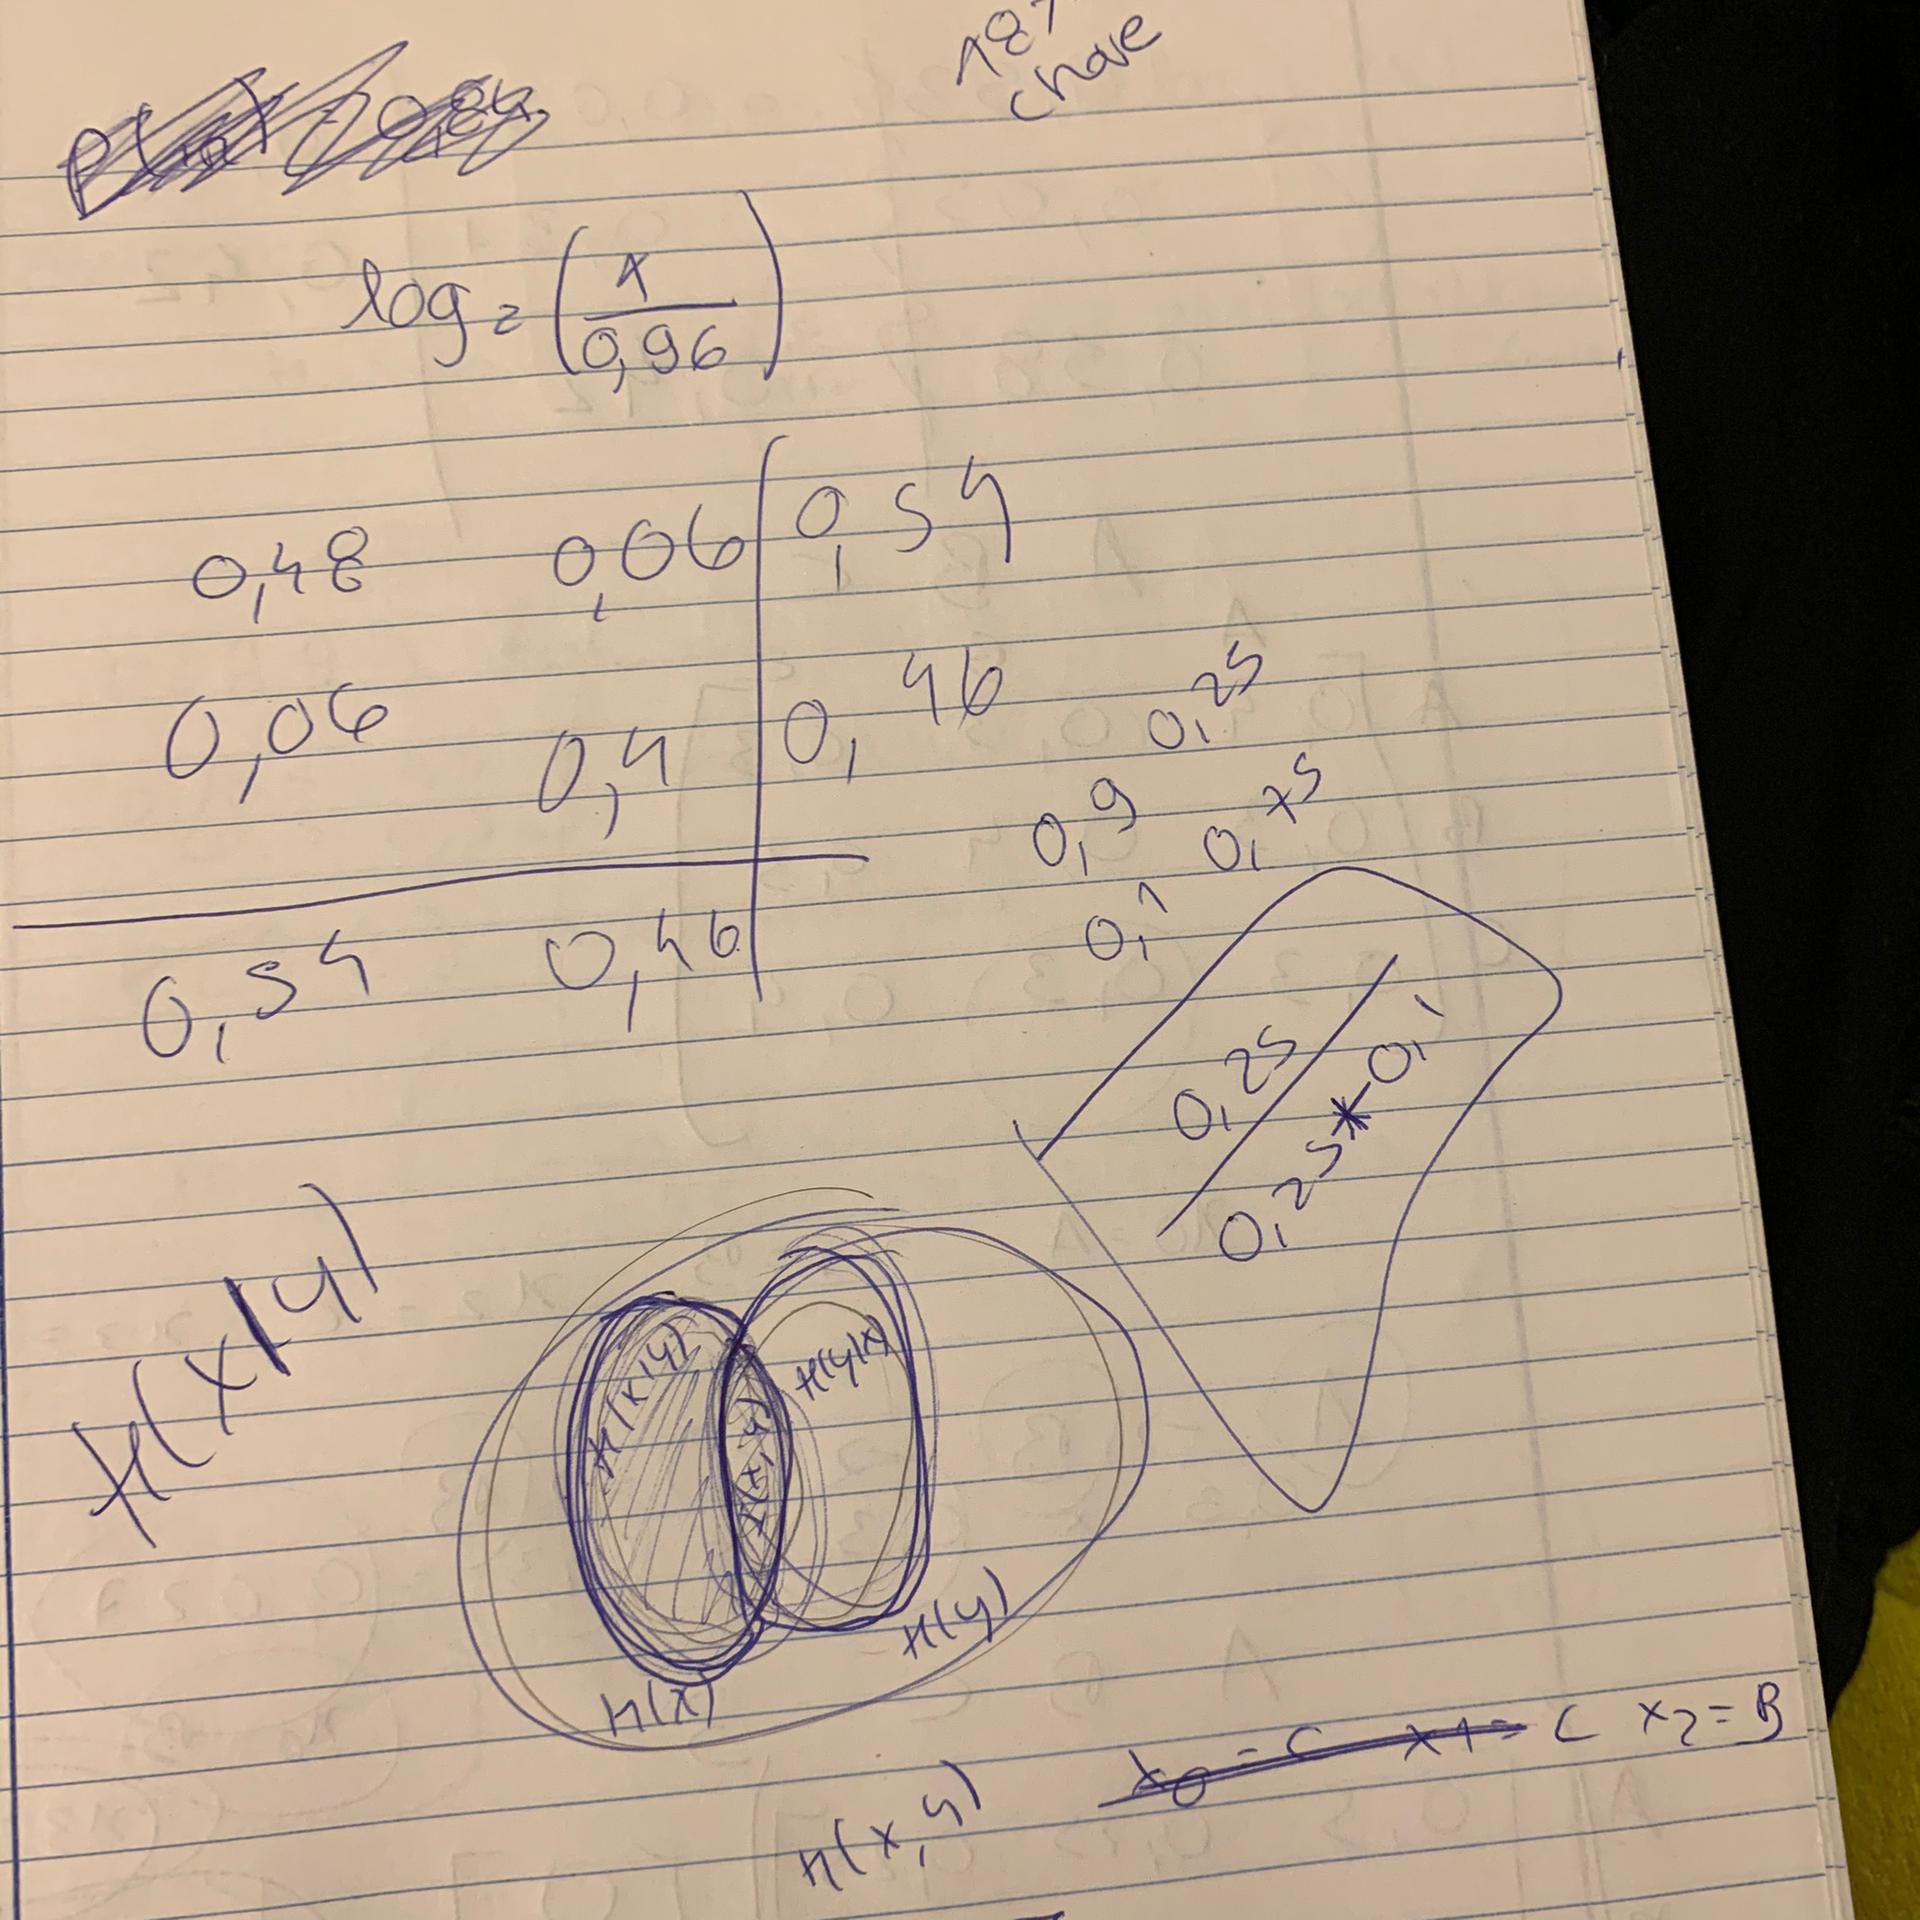 chave
log₂ (1/0,96)
0,48 0,06 0,54
0,06 0,4 0,46
0,54 0,46
0,25
0,9 0,75
0,1
0,25
0,25*0,1
H(x|y)
H(x|y) I(x,y) H(y|x)
H(x) H(y)
H(x,y)
x0=C x1=C x2=B